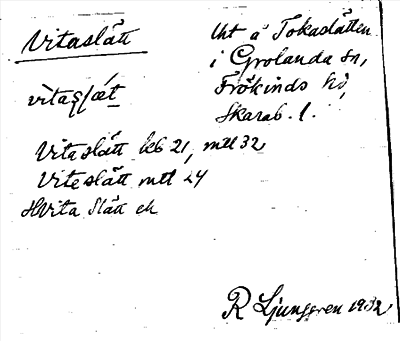 Vitaslätt
Uht å Tokaslätten
i Grolanda sn,
Frökinds hd,
Skarab. l.
vìtaslǽt
Vitaslätt lcb 21, mtl 32
Viteslätt mtl 24
Hvita Slätt ek
R Ljunggren 1932